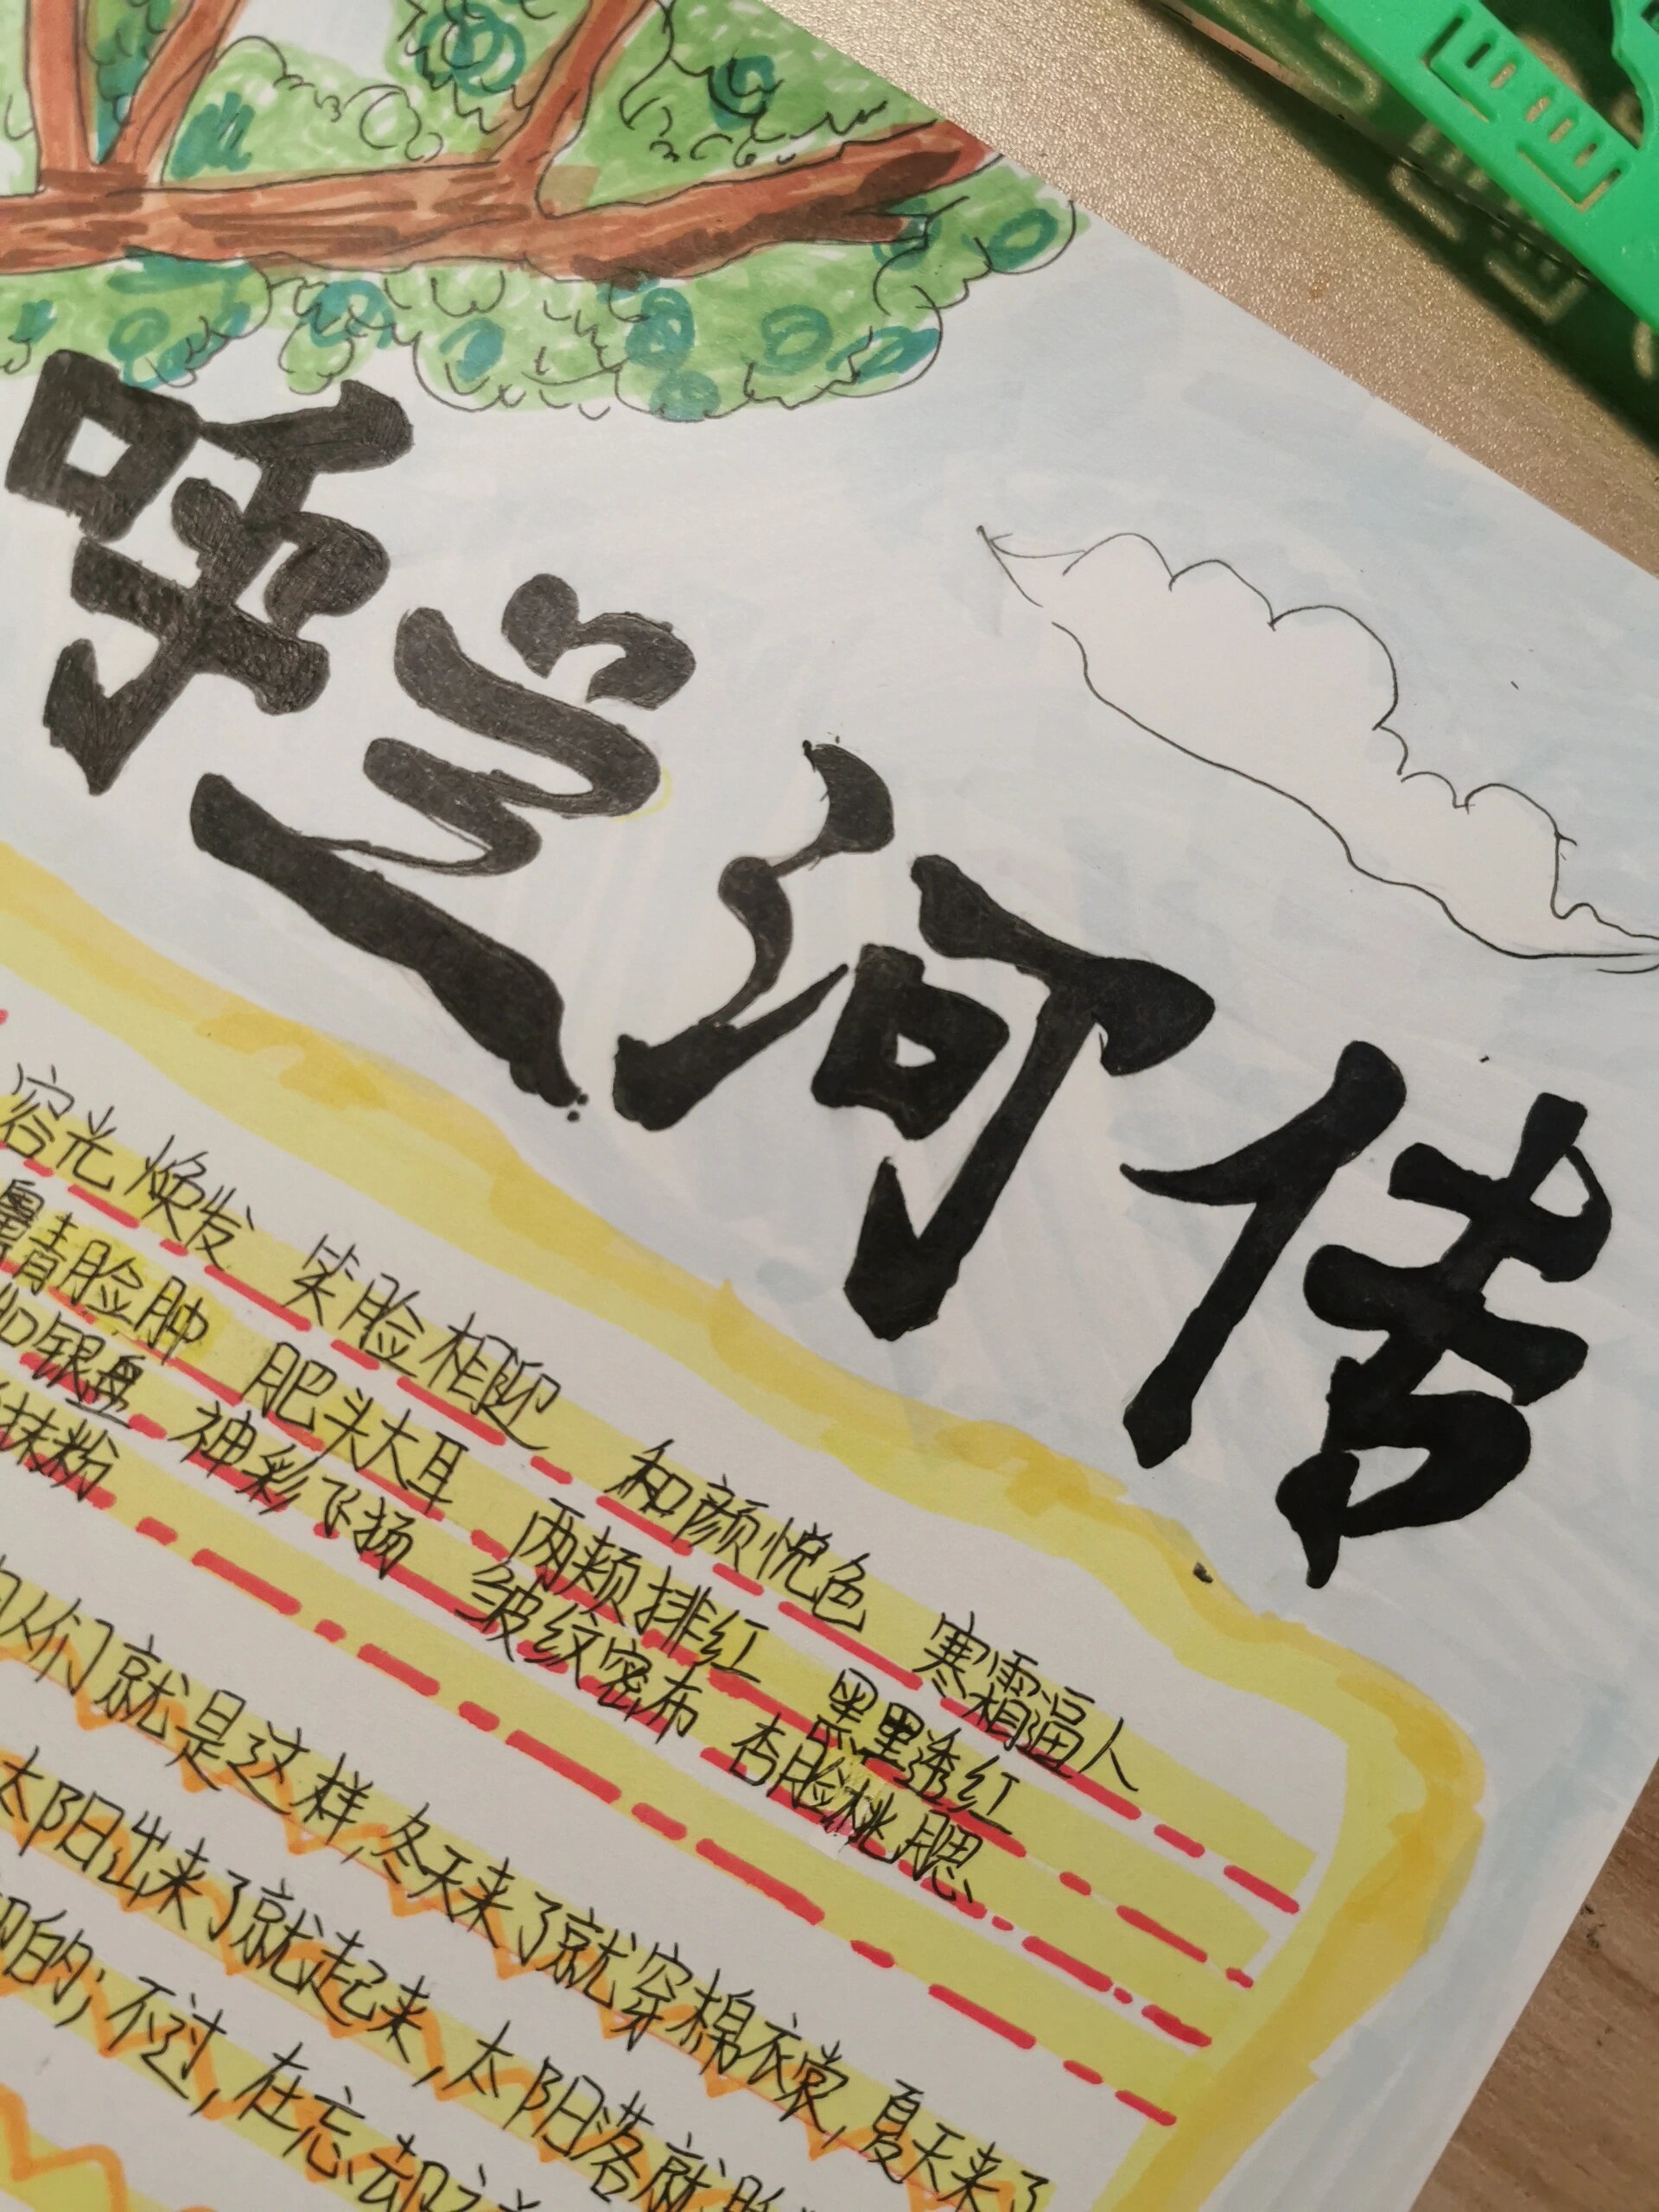 呼兰河传
容光焕发 笑脸相迎 和颜悦色 寒霜逼人
青脸肿 肥头大耳 两颊排红 黑里透红
如银盘 神彩飞扬 皱纹密布 杏脸桃腮
抹粉
人们就是这样,冬天来了就穿棉衣裳,夏天来了
太阳出来了就起来,太阳落就
的;不过,在忘却